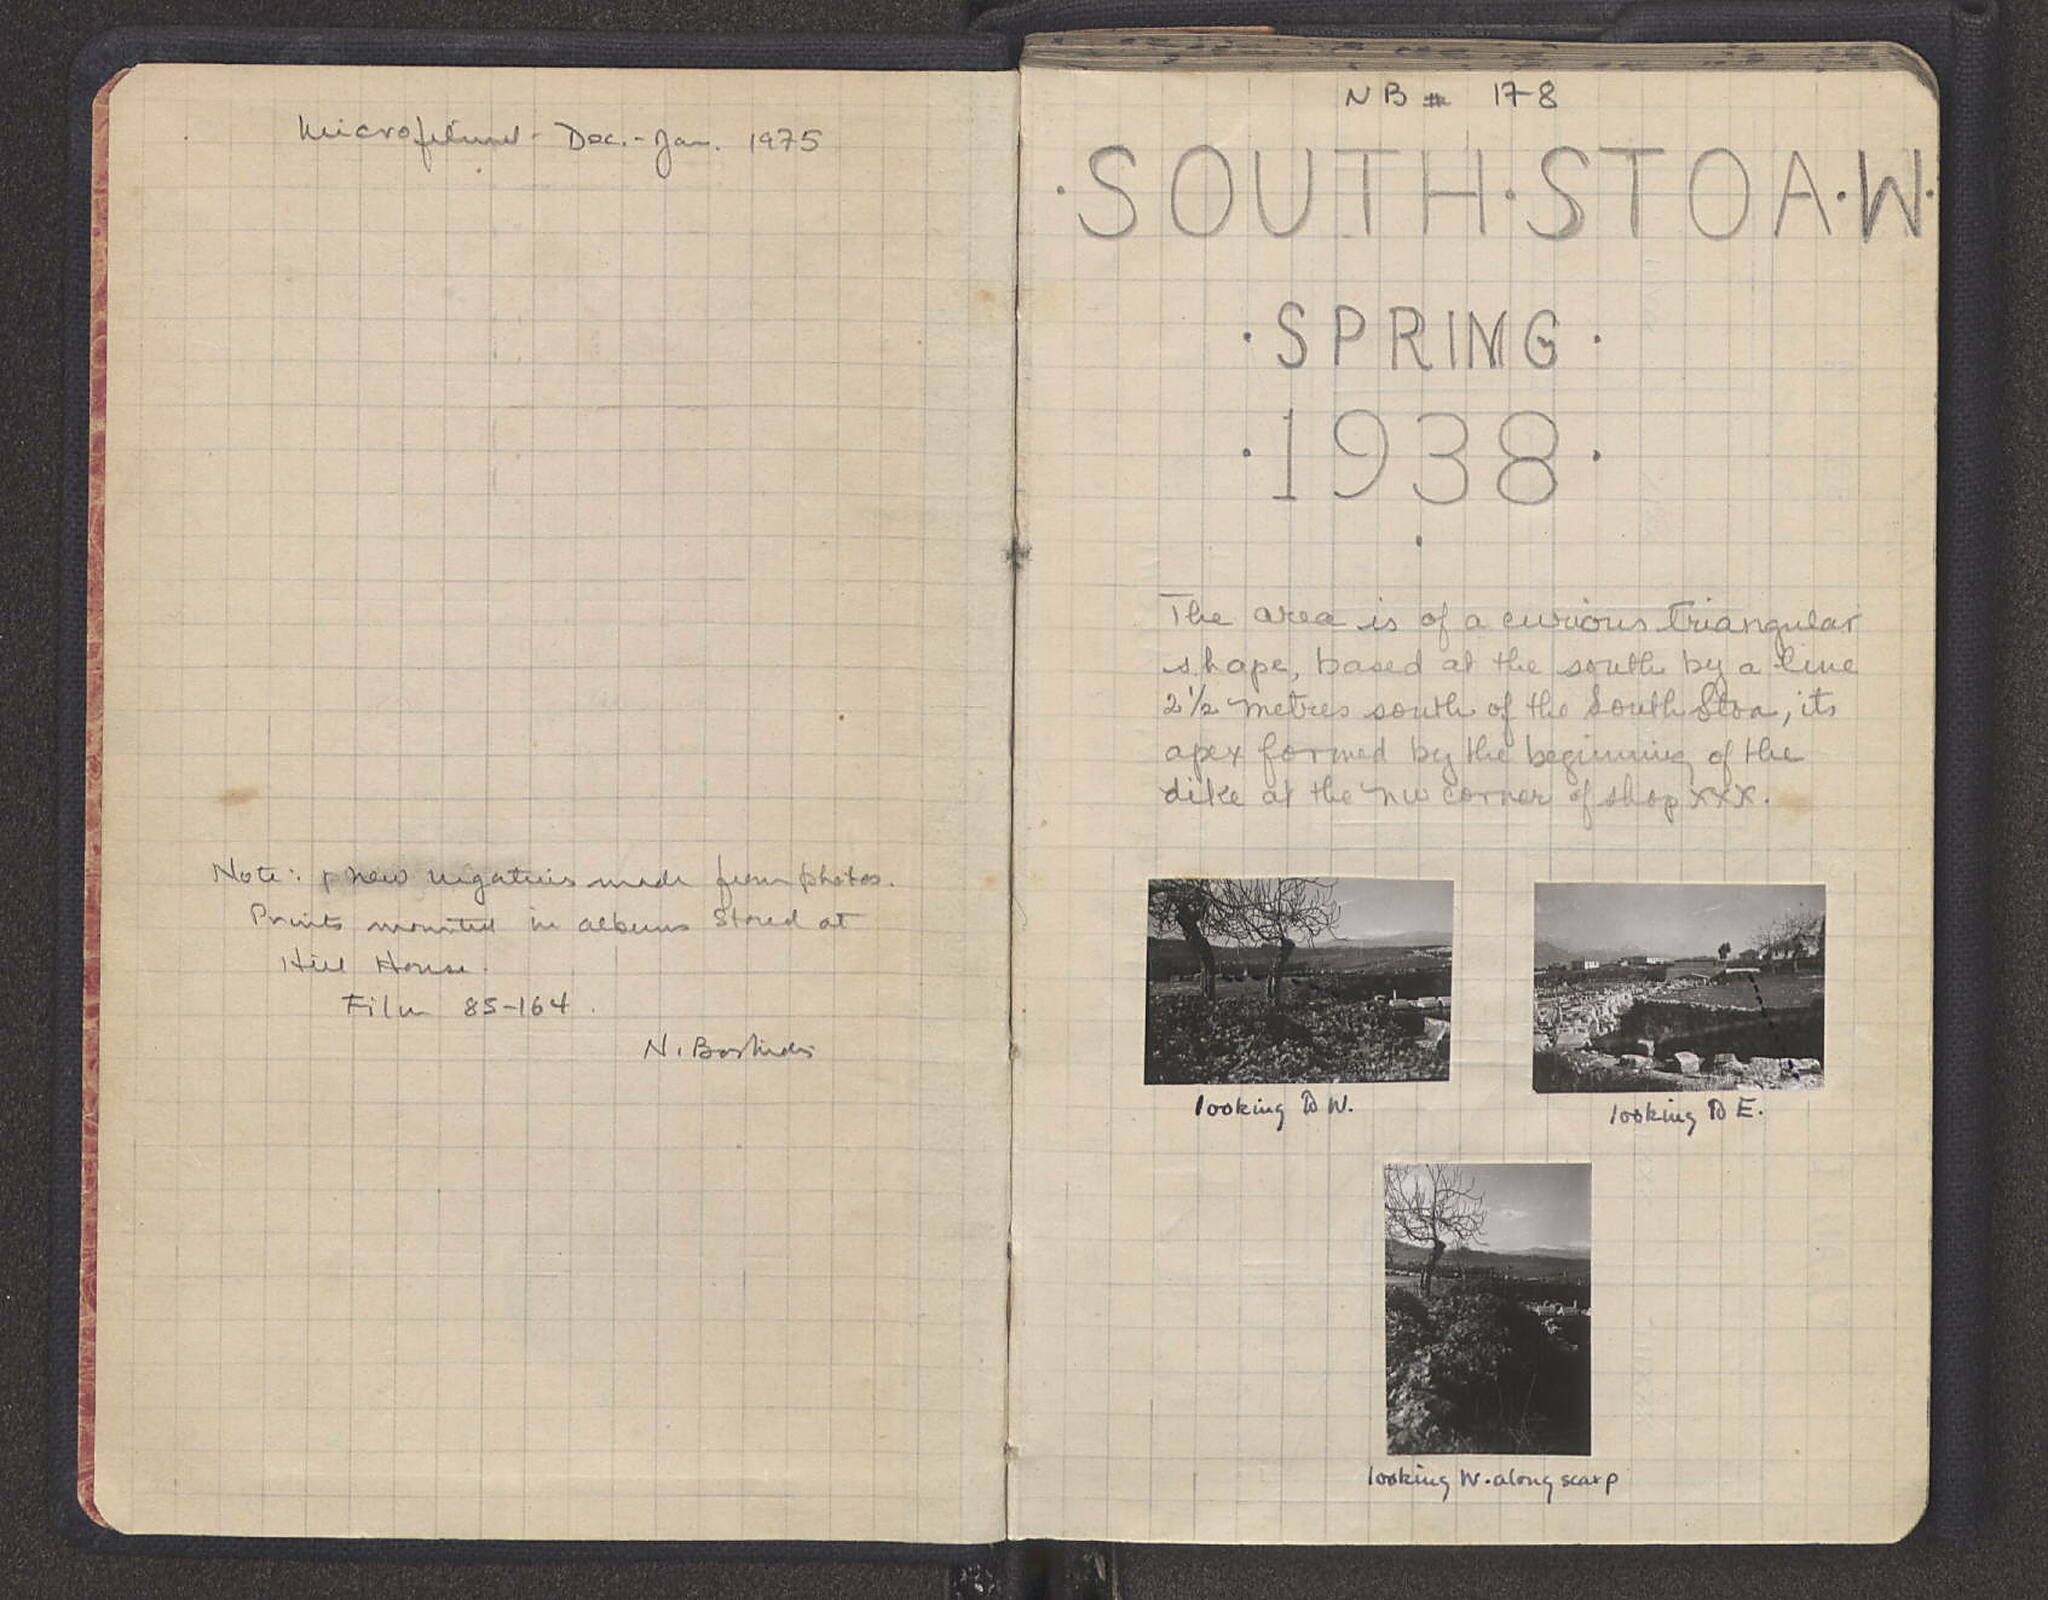 Microfilmed - Dec.-Jan. 1975
Note: new negatives made from photos.
Prints mounted in albums stored at
Hill House.
Film 85-164.
N. Bookidis
NB # 178
·SOUTH·STOA·W·
·SPRING·
·1938·
The area is of a curious triangular
shape, based at the south by a line
2½ metres south of the South Stoa, its
apex formed by the beginning of the
dike at the nw corner of shop XXX.
looking to W.
looking to E.
looking W. along scarp